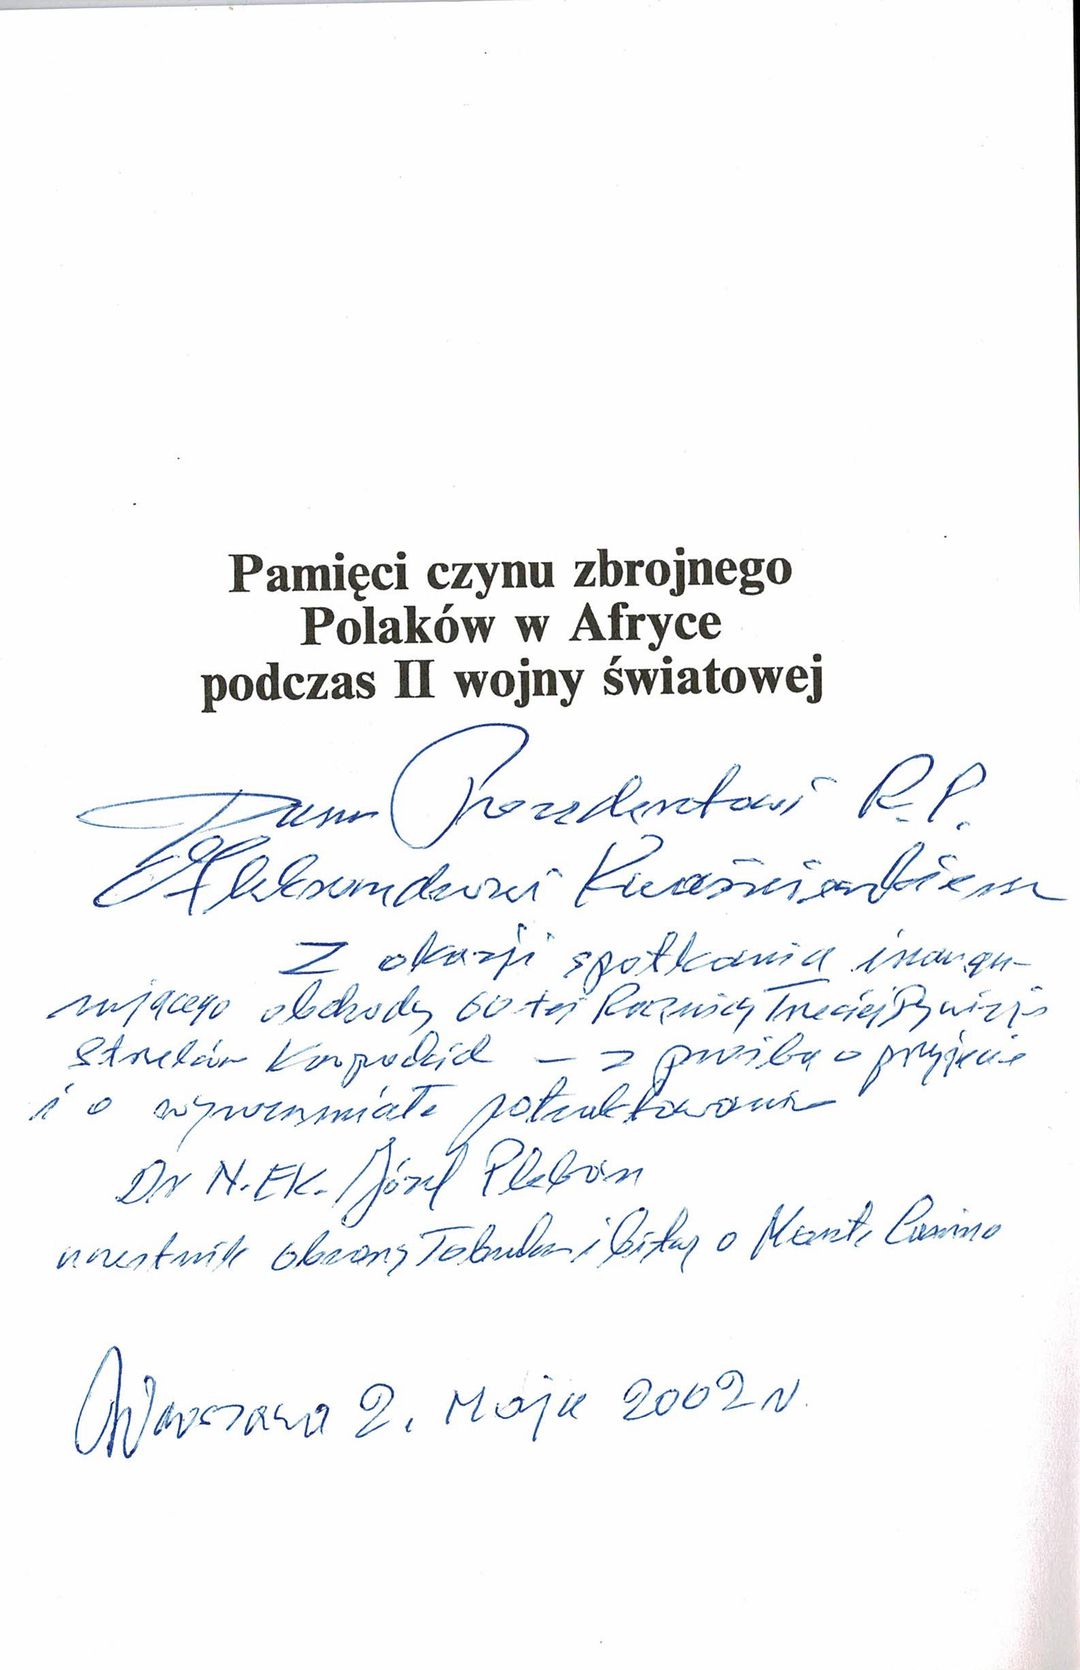 Pamięci czynu zbrojnego
Polaków w Afryce
podczas II wojny światowej
Panu Prezydentowi R.P.
Aleksandrowi Kwaśniewskiemu
Z okazji spotkania inaugu-
rującego obchody 60 tej Rocznicy Trzeciej Dywizji
Strzelców Karpackich – z prośbą o przyjęcie
i o wyrozumiałe potraktowanie
Dr N. EK. Józef Pleban
uczestnik obrony Tobruku i bitwy o Monte Cassino
Warszawa 2. Maja 2002 r.